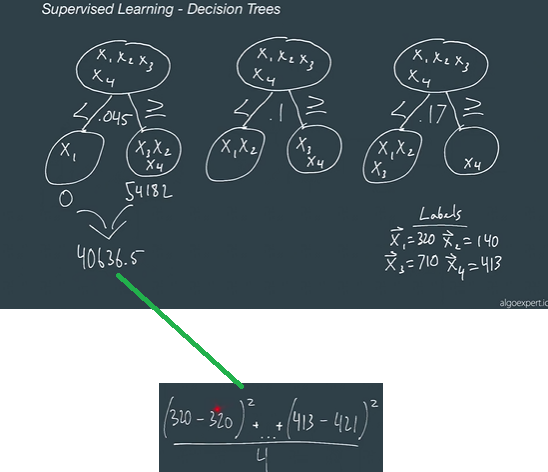 Supervised Learning - Decision Trees
X₁ X₂ X₃
X₄
X₁ X₂ X₃
X₄
X₁ X₂ X₃
X₄
< .045 ≥
< .1 ≥
< .17 ≥
X₁
X₃ X₂
X₄
X₁ X₂
X₃
X₄
X₁ X₂
X₃
X₄
0
54182
40636.5
Labels
X⃗₁=320 X⃗₂=140
X⃗₃=710 X⃗₄=413
algoexpert.io
(320 - 320)² + ... + (413 - 421)²
4